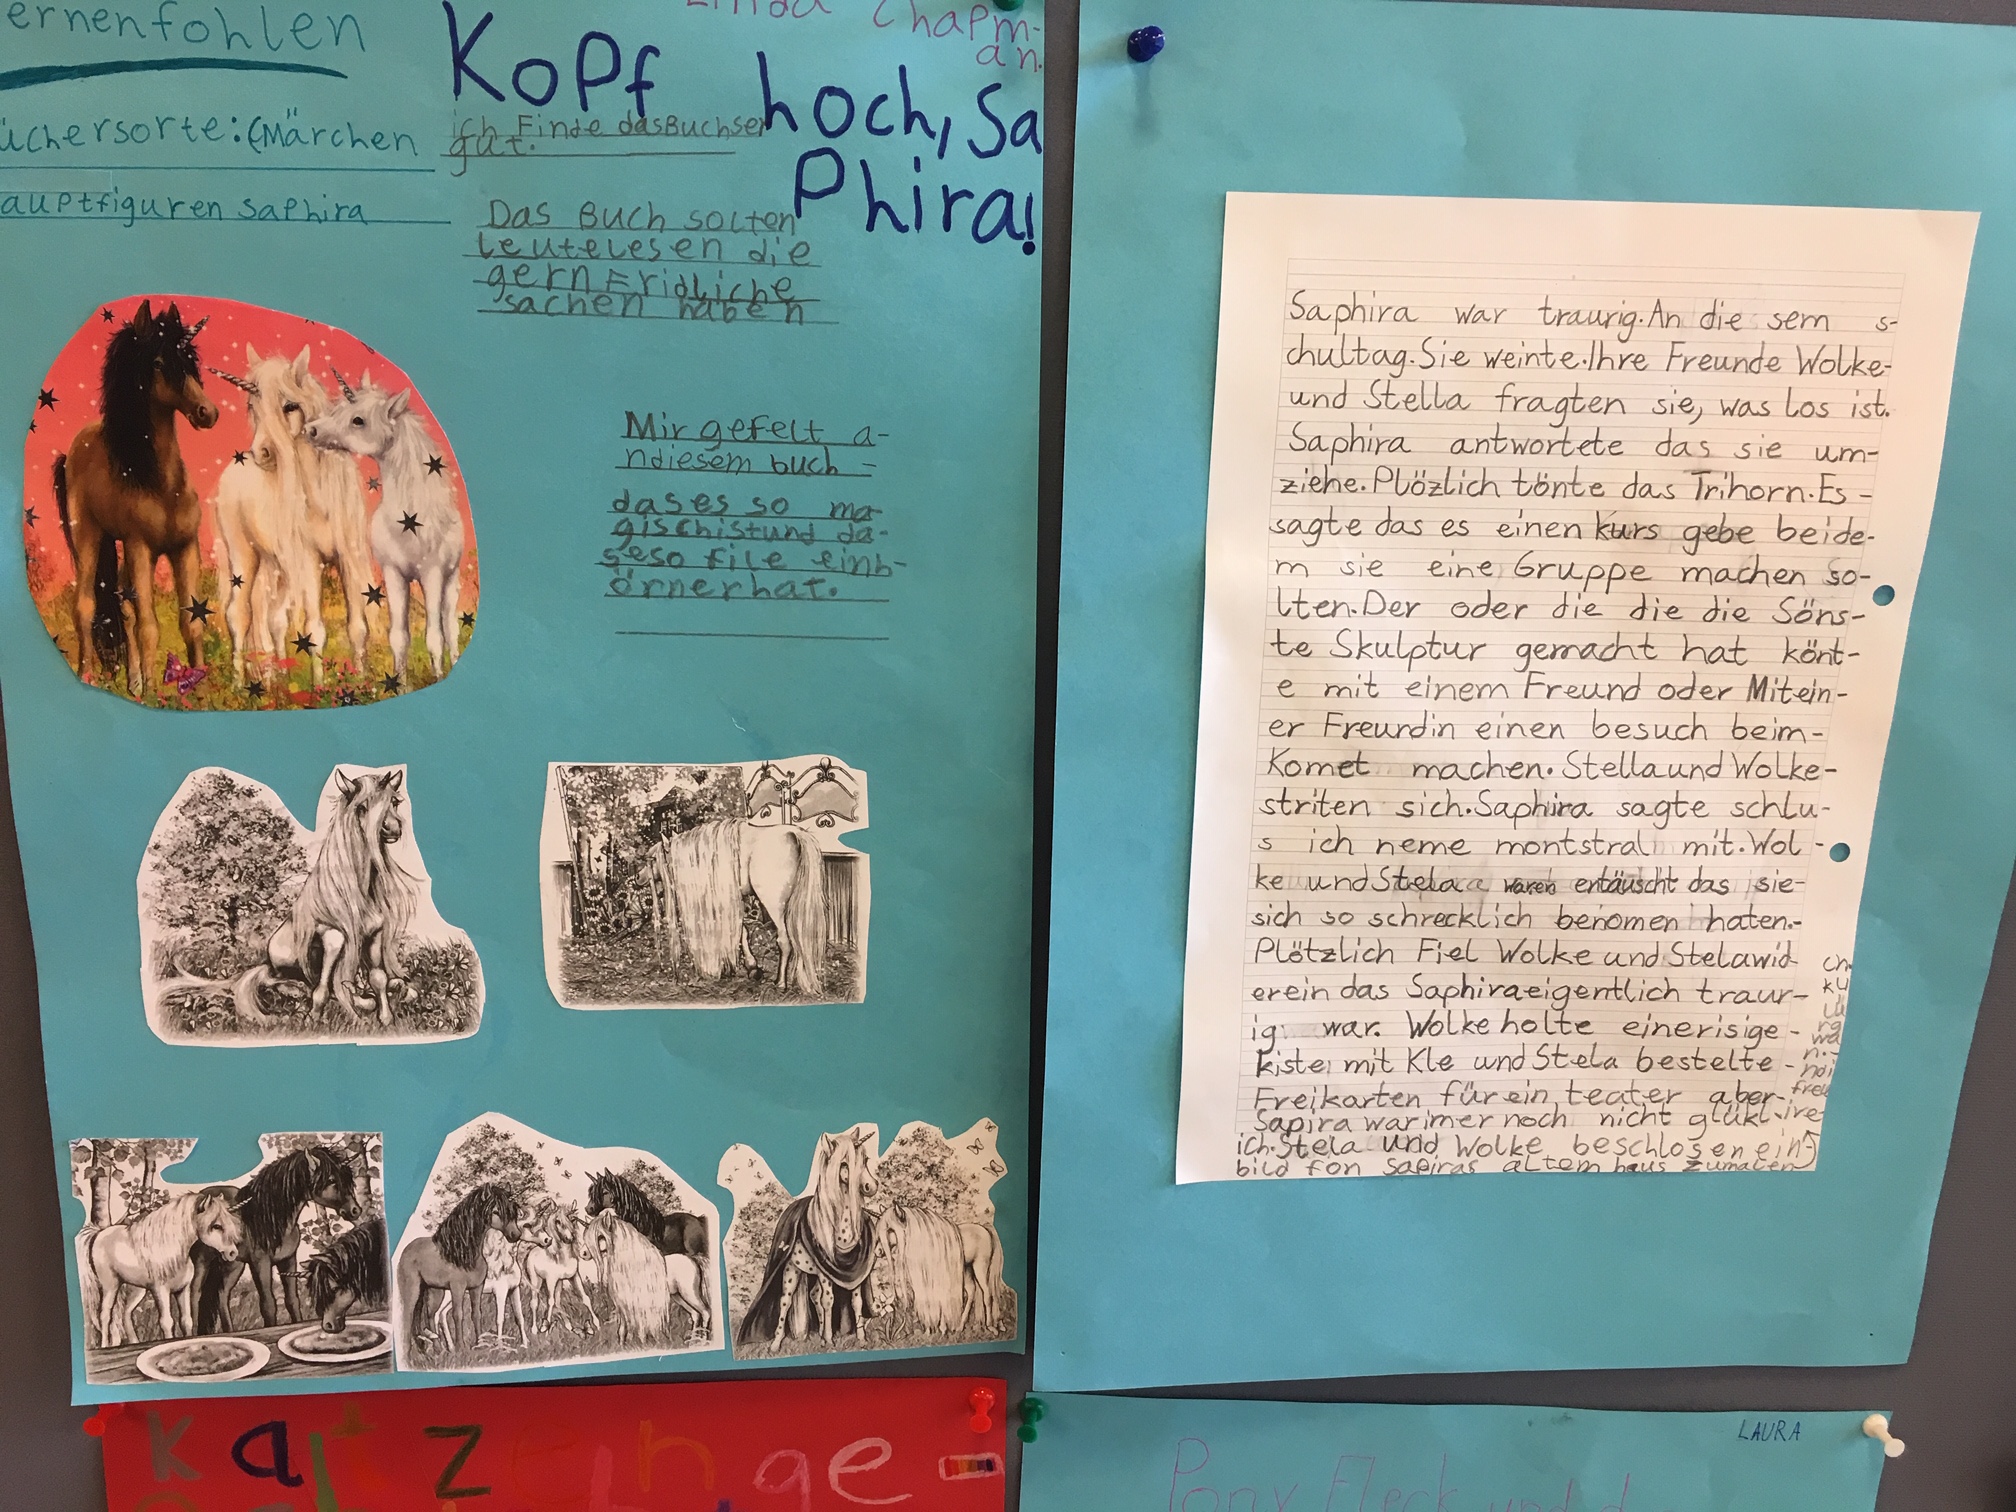 ernenfohlen
üchersorte: Märchen
auptfiguren Saphira
Linda Chapm-
an.
Kopf hoch, Sa
Phira!
ich Finde das Buch ser
gut.
Das Buch solten
leute lesen die
gern Fridliche
sachen haben
Mir gefelt a-
ndiesem buch =
das es so ma-
gisch ist und da-
s es so file einh-
örner hat.
Saphira war traurig. An die sem s-
chultag. Sie weinte. Ihre Freunde Wolke-
und Stella fragten sie, was los ist.
Saphira antwortete das sie um-
ziehe. Plözlich tönte das Trihorn. Es -
sagte das es einen kurs gebe beide-
m sie eine Gruppe machen so-
lten. Der oder die die die Söns-
te Skulptur gemacht hat könt-
e mit einem Freund oder Mitein-
er Freundin einen besuch beim-
Komet machen. Stella und Wolke-
striten sich. Saphira sagte schlu-
s ich neme montstral mit. Wol -
ke und Stela waren entäuscht das sie-
sich so schrecklich benomen haten.-
Plötzlich Fiel Wolke und Stela wid
erein das Saphira eigentlich traur-
ig war. Wolke holte eine risige -
kiste mit Kle und Stela bestelte -
Freikarten für ein teater aber-
Sapira war imer noch nicht glükl-
ich. Stela und Wolke beschlosen ein
bild fon sapiras altem haus zumalen
katzenge-
LAURA
Pony Fleck und d